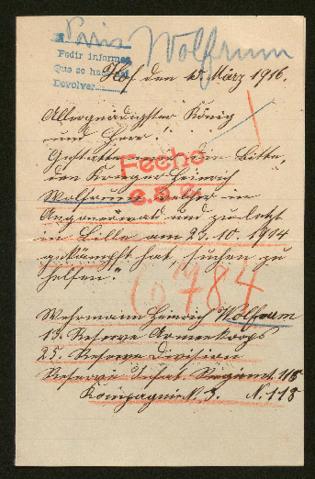 Paris Wolfrum
Pedir informes
Que se haga
Devolver
Hof den 15. März 1916.
Allergnädigster König
und Herr!
Gestatten die Bitte,
den Krieger Heinrich
Fecho
Wolfrum welcher in
und zuletzt
in Lille am 23.10.1904
gekämpft hat, suchen zu
helfen.
784
Wehrmann Heinrich Wolfrum
Reserve Armeekorps
25. Reserve Division
Reserve Infat. Regiment. 118
Kompagnie N. 3. N. 118